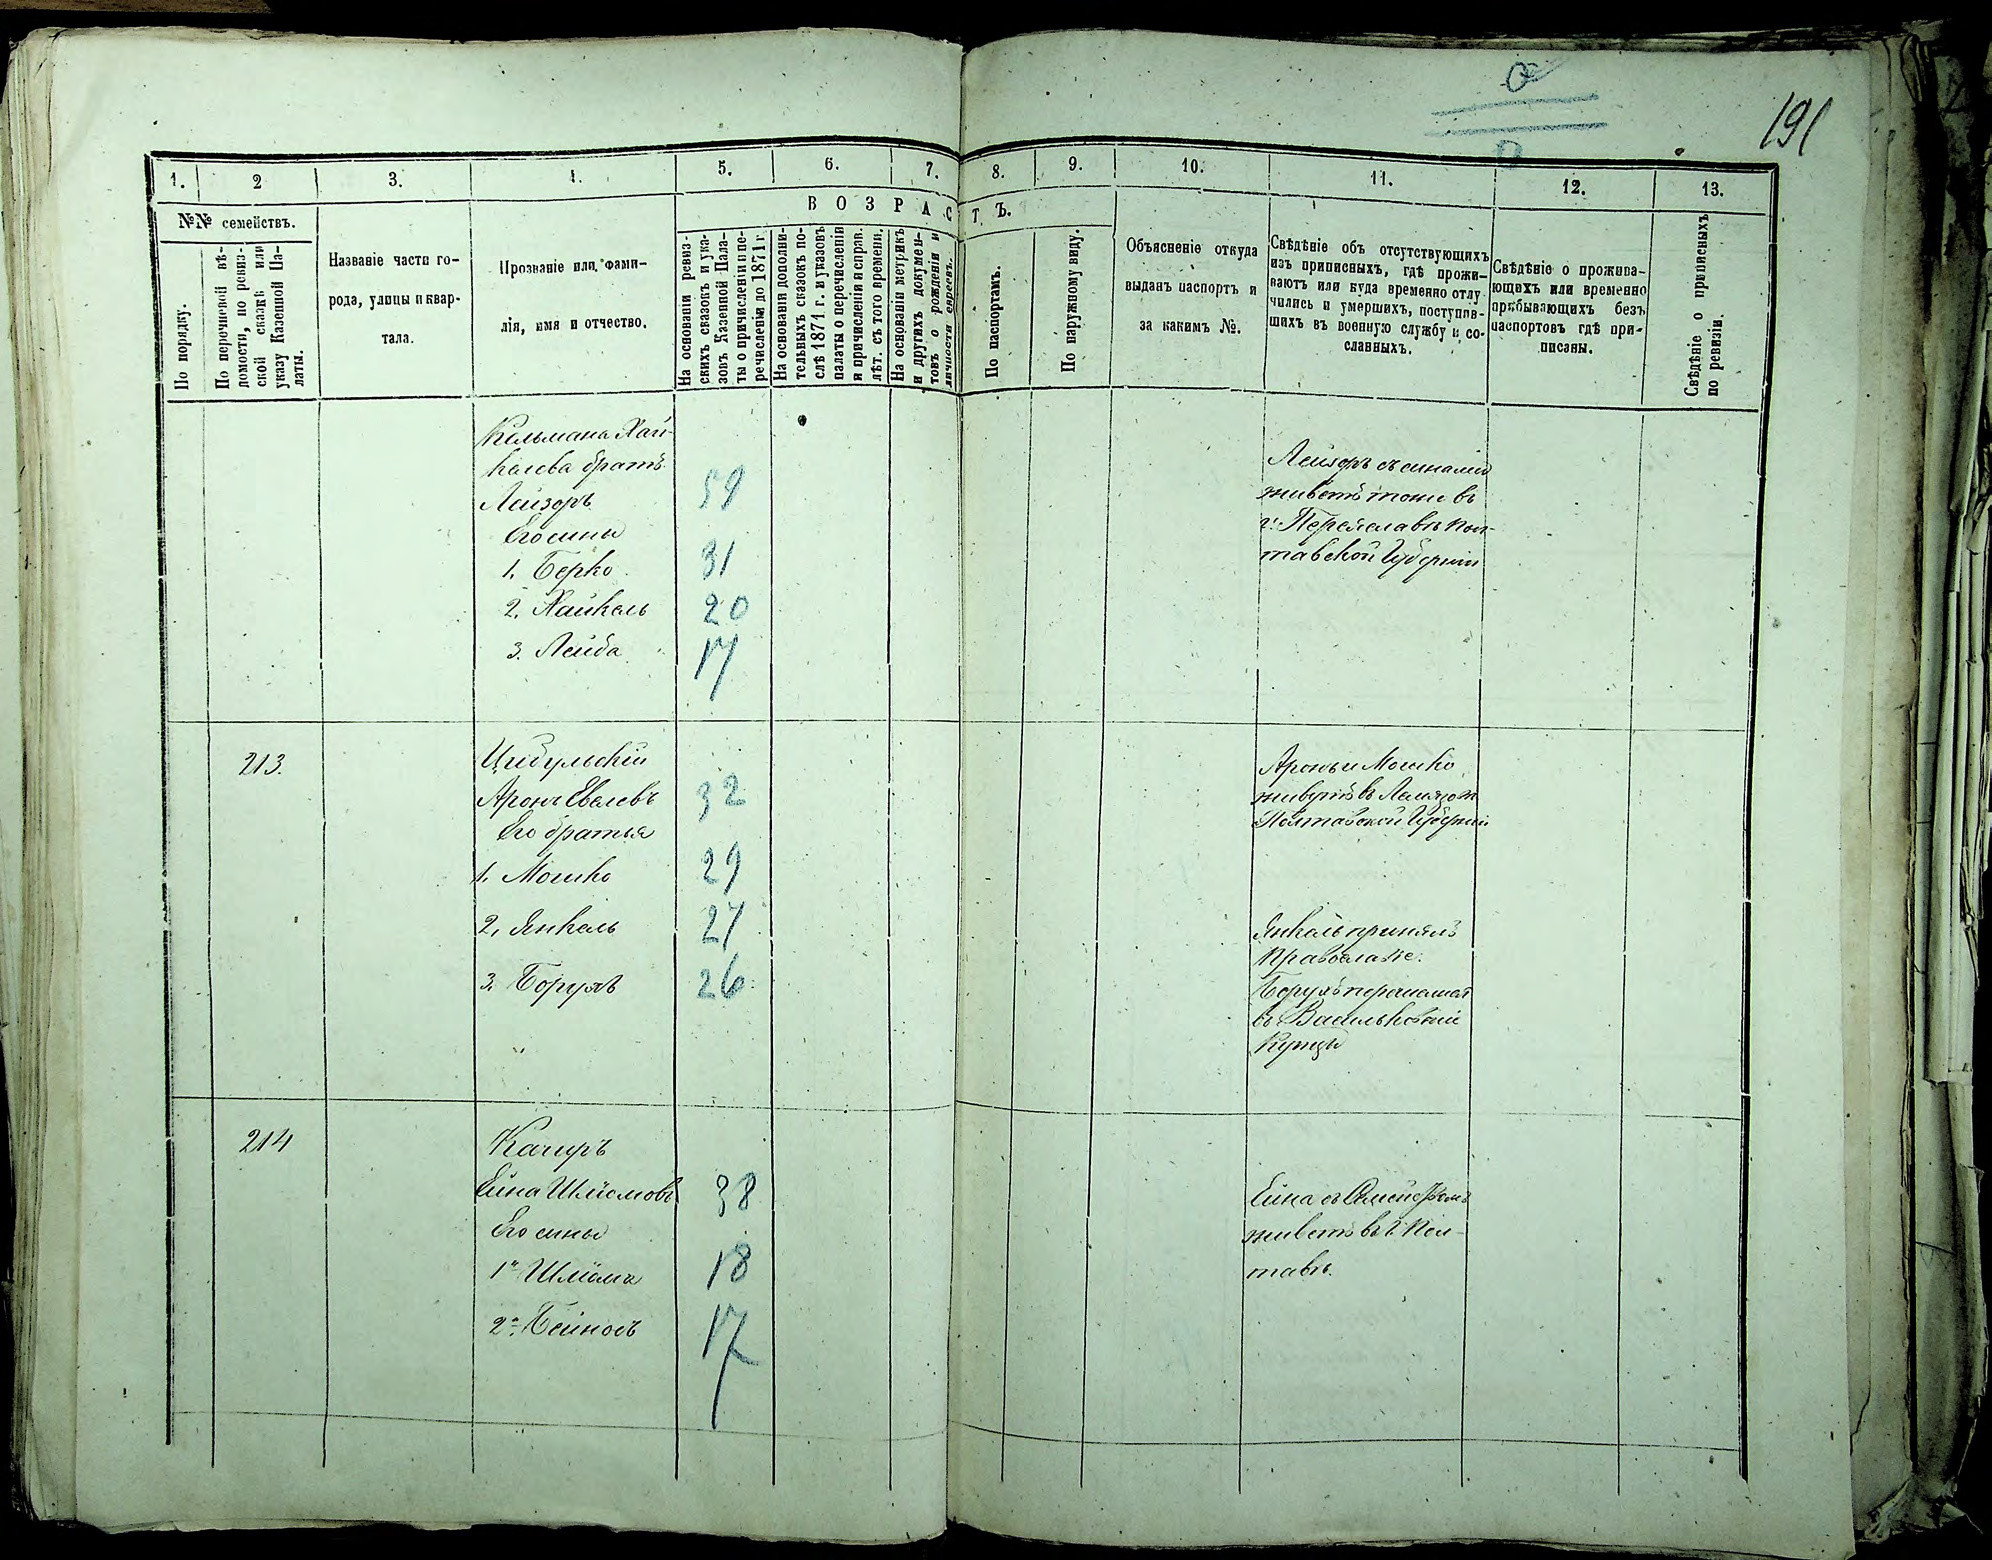 191
1. 2 3. 4. 5. 6. 7. 8. 9. 10. 11. 12. 13.
№№ семействъ.
По порядку.
По перечневой вѣ-
домости, по ревиз-
ской сказкѣ или
указу Казенной Па-
латы.
Названіе части го-
рода, улицы и квар-
тала.
Прозваніе или фами-
лія, имя и отчество.
ВОЗРАСТЪ.
На основаніи ревиз-
скихъ сказокъ и ука-
зовъ Казенной Пала-
ты о причисленіи и пе-
речисленіи до 1871 г.
На основаніи дополни-
тельныхъ сказокъ по-
слѣ 1871 г. и указовъ
палаты о перечисленіи
и причисленіи и справ.
лѣт. съ того времени.
На основаніи метрикъ
и другихъ докумен-
товъ о рожденіи и
личности евреевъ.
По паспортамъ.
По наружному виду.
Объясненіе откуда
выданъ паспортъ и
за какимъ №.
Свѣдѣніе объ отсутствующихъ
изъ приписныхъ, гдѣ прожи-
ваютъ или куда временно отлу-
чились и умершихъ, поступив-
шихъ въ военную службу и со-
сланныхъ.
Свѣдѣніе о прожива-
ющихъ или временно
прибывающихъ безъ
паспортовъ гдѣ при-
писаны.
Свѣдѣніе о приписныхъ
по ревизіи.
Кельмана Хай-
келева братъ
Лейзоръ 59
Его сины
1. Берко 31
2. Хайкель 20
3. Лейба 17
Лейзоръ съ синами
живетъ тоже въ
г. Переяславѣ Пол-
тавской Губерніи
213.
Цибульскій
Аронъ Евелевъ 32
Его братья
1. Мошко 29
2. Янкель 27
3. Борухъ 26
Аронъ и Мошко
живутъ въ
Полтавской Губерніи
Янкель принялъ
Православіе.
Борухъ перечислил
въ Васильковскіи
Купцы
214
Качеръ
Ейна Шліомовъ 38
Его сины
1й Шліома 18
2й Бейносъ 17
Ейна съ Семействомъ
живетъ въ г. Пол-
тавѣ.